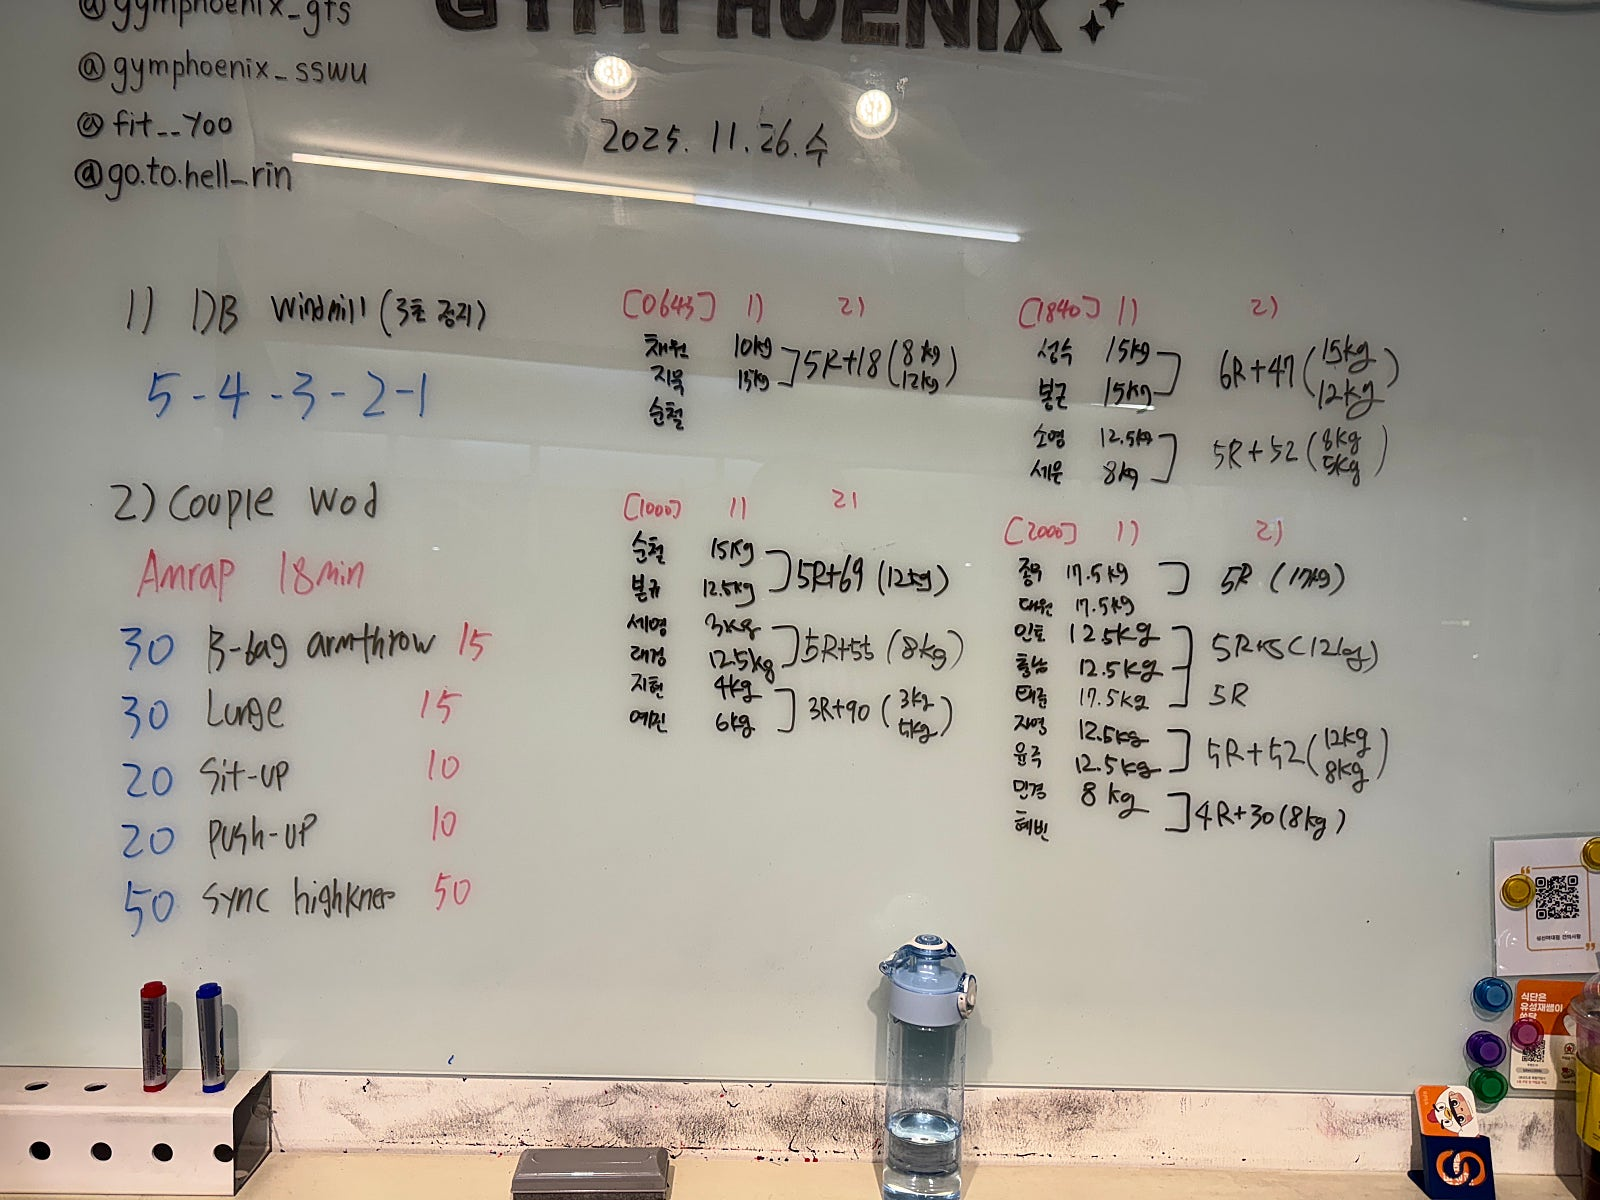 @gymphoenix_gts
GYMPHOENIX
@gymphoenix_sswu
@fit__yoo
@go.to.hell_rin
2025. 11. 26. 수
1) DB windmill (3초 정지)
5 - 4 - 3 - 2 - 1
2) Couple wod
Amrap 18min
30 B-bag armthrow 15
30 Lunge 15
20 Sit-up 10
20 Push-up 10
50 Sync highknee 50
[0643] 1) 2)
채원 10kg
지묵 15kg
5R+18 (8kg 12kg)
순철
[1000] 1) 2)
순철 15kg
본규 12.5kg
5R+69 (12kg)
세영 3kg
태경 12.5kg
5R+55 (8kg)
지현 4kg
예진 6kg
3R+90 (3kg 5kg)
[1840] 1) 2)
성수 15kg
봉근 15kg
6R+47 (15kg 12kg)
소영 12.5kg
세운 8kg
5R+52 (8kg 5kg)
[2000] 1) 2)
종우 17.5kg
5R (17kg)
대원 17.5kg
인호 12.5kg
12.5kg
17.5kg
5R+5 (12kg)
5R
지영 12.5kg
윤주 12.5kg
5R+52 (12kg 8kg)
민경 8kg
혜빈
4R+30 (8kg)
식단은
유성재쌤이